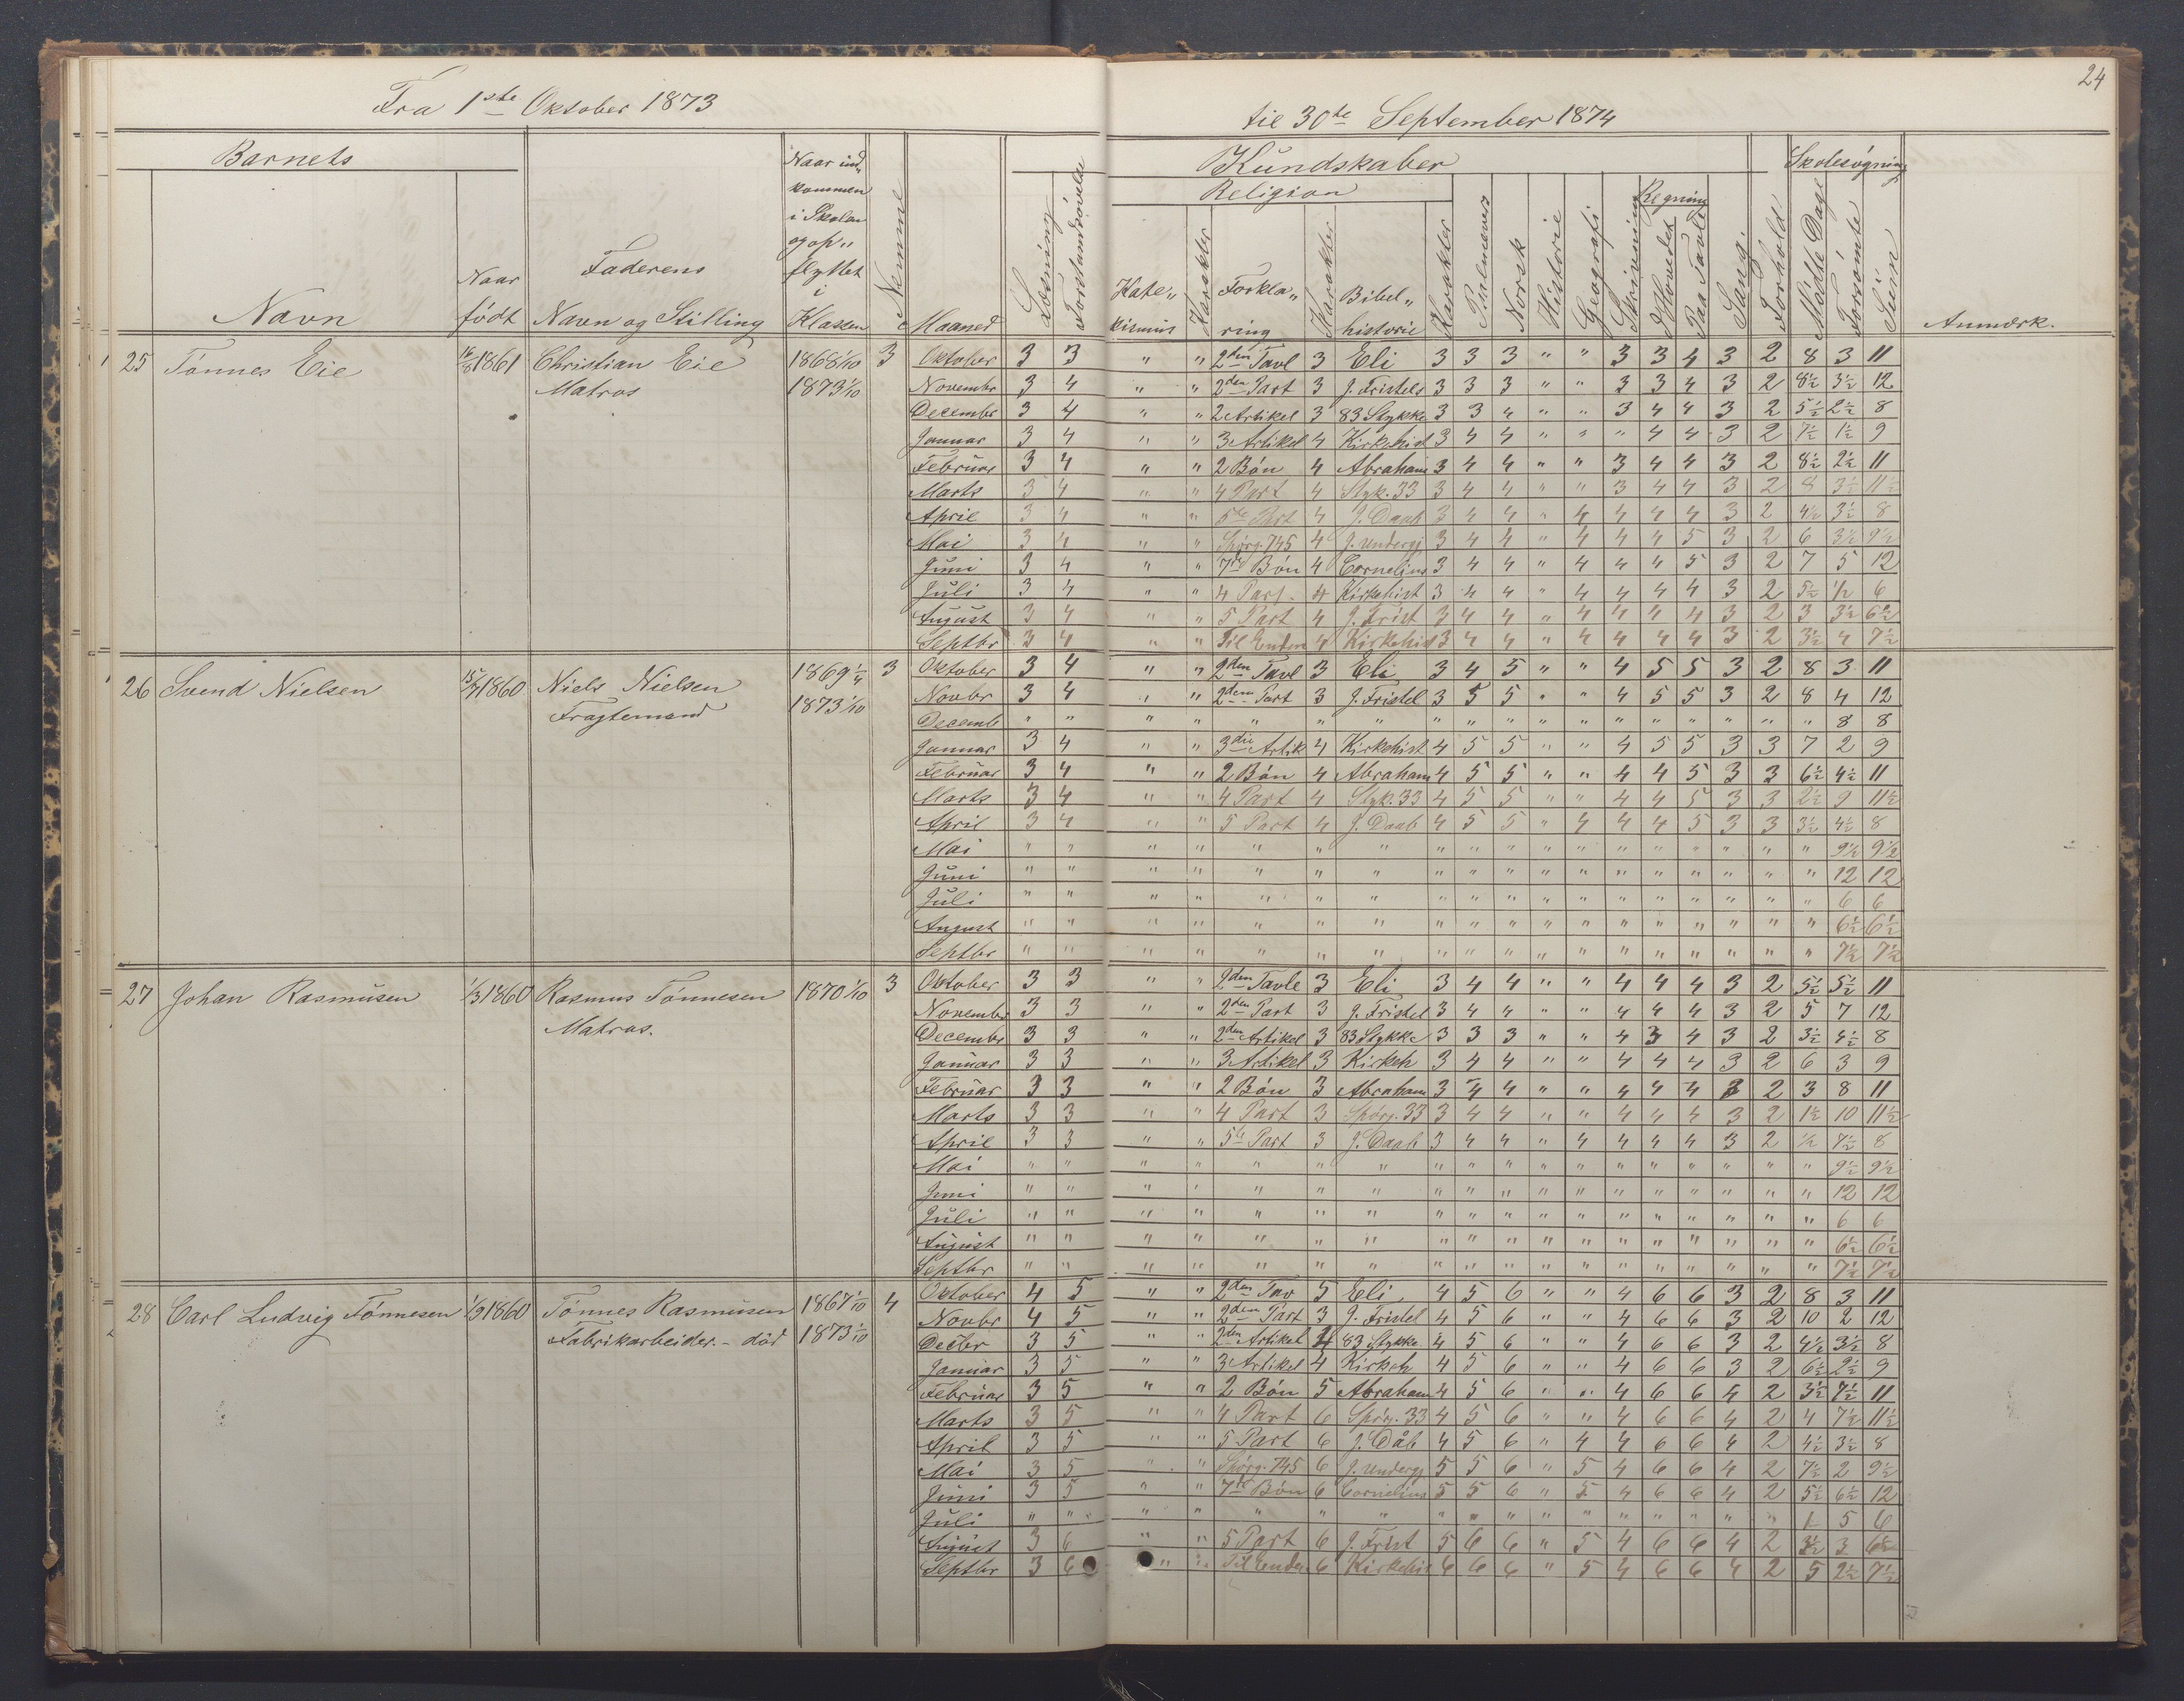 24
Fra 1ste Oktober 1873 til 30te September 1874
Barnets
Navn
Naar født
Faderens Navn og Stilling
Naar ind„ kommen i Skolen og op„ flyttet i Klassen
Nemme
Maaned
Læsning
Forstandsøvelse
Kundskaber
Religion
Kate„ kismus
Karakter
Forkla„ ring
Karakter
Bibel„ historie
Karakter
Psalmevers
Norsk
Historie
Geografi
Skrivning
Regning
I Hovedet
Paa Tavle
Sang.
Forhold
Skolesøgning
Mødte Dage
Forsømte
Sum
Anmærk.
25 Tønnes Eie 16/8 1861 Christian Eie 1868 1/10 3 Oktober 3 3 " " 2den Tavl 3 Eli 3 3 3 " " 3 3 4 3 2 8 3 11
Matros 1873 1/10 Novembr 3 4 " " 2den Part 3 J. Fristels 3 3 3 " " 3 3 4 3 2 8½ 3½ 12
December 3 4 " " 2 Artikel 3 83 Stykke 3 3 4 " " 3 4 4 3 2 5½ 2½ 8
Januar 3 4 " " 3 Artikel 4 Kirkehist 3 4 4 " " " 4 4 3 2 7½ 1½ 9
Februar 3 4 " " 2 Bøn 4 Abraham 3 4 4 " " 3 4 4 3 2 8½ 2½ 11
Marts 3 4 " " 4 Part 4 Styk. 33 3 4 4 " " 3 4 4 3 2 8 3½ 11½
April 3 4 " " 5te Part 4 J. Daab 3 4 4 " 4 4 4 4 3 2 4½ 3½ 8
Mai 3 4 " " Spørg. 745 4 J. undergj 3 4 4 " 4 4 4 5 3 2 6 3½ 9½
Juni 3 4 " " 7de Bøn 4 Cornelius 3 4 4 " 4 4 4 5 3 2 7 5 12
Juli 3 4 " " 4 Part. 4 Kirkehist 3 4 4 " 4 4 4 4 3 2 5½ ½ 6
August 3 4 " " 5 Part 4 J. Frist 3 4 4 " 4 4 4 4 3 2 3 3½ 6½
Septbr 3 4 " " Til Enden 4 Kirkehist 3 4 4 " 4 4 4 4 3 2 3½ 4 7½
26 Svend Nielsen 15/4 1860 Niels Nielsen 1869 1/4 3 Oktober 3 4 " " 2den Tavl 3 Eli 3 4 5 " " 4 5 5 3 2 8 3 11
Fragtemand 1873 1/10 Novbr 3 4 " " 2den Part 3 J. Fristel 3 5 5 " " 4 5 5 3 2 8 4 12
Decemb " " " " " " " " " " " " " " " " " " 8 8
Januar 3 4 " " 3die Artik 4 Kirkehist 4 5 5 " " 4 5 5 3 3 7 2 9
Februar 3 4 " " 2 Bøn 4 Abraham 4 5 5 " " 4 4 5 3 3 6½ 4½ 11
Marts 3 4 " " 4 Part 4 Styk. 33 4 5 5 " " 4 4 5 3 3 2½ 9 11½
April 3 4 " " 5 Part 4 J. Daab 4 5 5 " 4 4 4 5 3 3 3½ 4½ 8
Mai " " " " " " " " " " " " " " " " " " 9½ 9½
Juni " " " " " " " " " " " " " " " " " " 12 12
Juli " " " " " " " " " " " " " " " " " " 6 6
August " " " " " " " " " " " " " " " " " " 6½ 6½
Septbr " " " " " " " " " " " " " " " " " " 7½ 7½
27 Johan Rasmusen 1/3 1860 Rasmus Tønnesen 1870 1/10 3 Oktober 3 3 " " 2den Tavle 3 Eli 3 4 4 " " 4 4 4 3 2 5½ 5½ 11
Matros. Novembr 3 3 " " 2den Part 3 J. Fristel 3 4 4 " " 4 4 4 3 2 5 7 12
Decembr 3 3 " " 2den Artikel 3 83 Stykke 3 3 3 " " 4 3 4 3 2 3½ 4½ 8
Januar 3 3 " " 3 Artikel 3 Kirkeh 3 4 4 " " 4 4 4 3 2 6 3 9
Februar 3 3 " " 2 Bøn 3 Abraham 3 4 4 " " 4 4 4 3 2 3 8 11
Marts 3 3 " " 4 Part 3 Spørg. 33 3 4 4 " " 4 4 4 3 2 1½ 10 11½
April 3 3 " " 5te Part 3 J. Daab 3 4 4 " 4 4 4 4 3 2 ½ 7½ 8
Mai " " " " " " " " " " " " " " " " " " 9½ 9½
Juni " " " " " " " " " " " " " " " " " " 12 12
Juli " " " " " " " " " " " " " " " " " " 6 6
August " " " " " " " " " " " " " " " " " " 6½ 6½
Septbr " " " " " " " " " " " " " " " " " " 7½ 7½
28 Carl Ludvig Tønnesen 1/9 1860 Tønnes Rasmusen 1867 1/10 4 Oktober 4 5 " " 2den Tav 5 Eli 4 5 6 " " 4 6 6 3 2 8 3 11
Fabrikarbeider. - död 1873 1/10 Novbr 4 5 " " 2den Part 3 J. Fristel 4 5 6 " " 4 6 6 3 2 10 2 12
Decbr 3 5 " " 2den Artikel 4 83 Stykke 4 5 6 " " 4 6 6 3 2 4½ 3½ 8
Januar 3 5 " " 3 Artikel 4 Kirkeh 4 5 6 " " 4 6 6 3 2 6½ 2½ 9
Februar 3 5 " " 2 Bøn 5 Abraham 4 5 6 " " 4 6 6 4 2 3½ 7½ 11
Marts 3 5 " " 4 Part 6 Spörg. 33 4 5 6 " " 4 6 6 4 2 4 7½ 11½
April 3 5 " " 5 Part 6 J. Dåb 4 5 6 " 4 4 6 6 4 2 4½ 3½ 8
Mai 3 5 " " Spörg. 745 6 J. undergj 5 5 6 " 5 4 6 6 4 2 7½ 2 9½
Juni 3 5 " " 7de Bön 6 Cornelius 5 5 6 " 5 4 6 6 4 2 5½ 6½ 12
Juli " " " " " " " " " " " " " " " " " 1 5 6
August 3 6 " " 5 Part 6 J. Frist 5 6 6 " 5 4 6 6 4 2 3½ 3 6½
Septbr 3 6 " " Til Enden 6 Kirkehis 6 6 6 " 5 4 6 6 4 2 5 2½ 7½